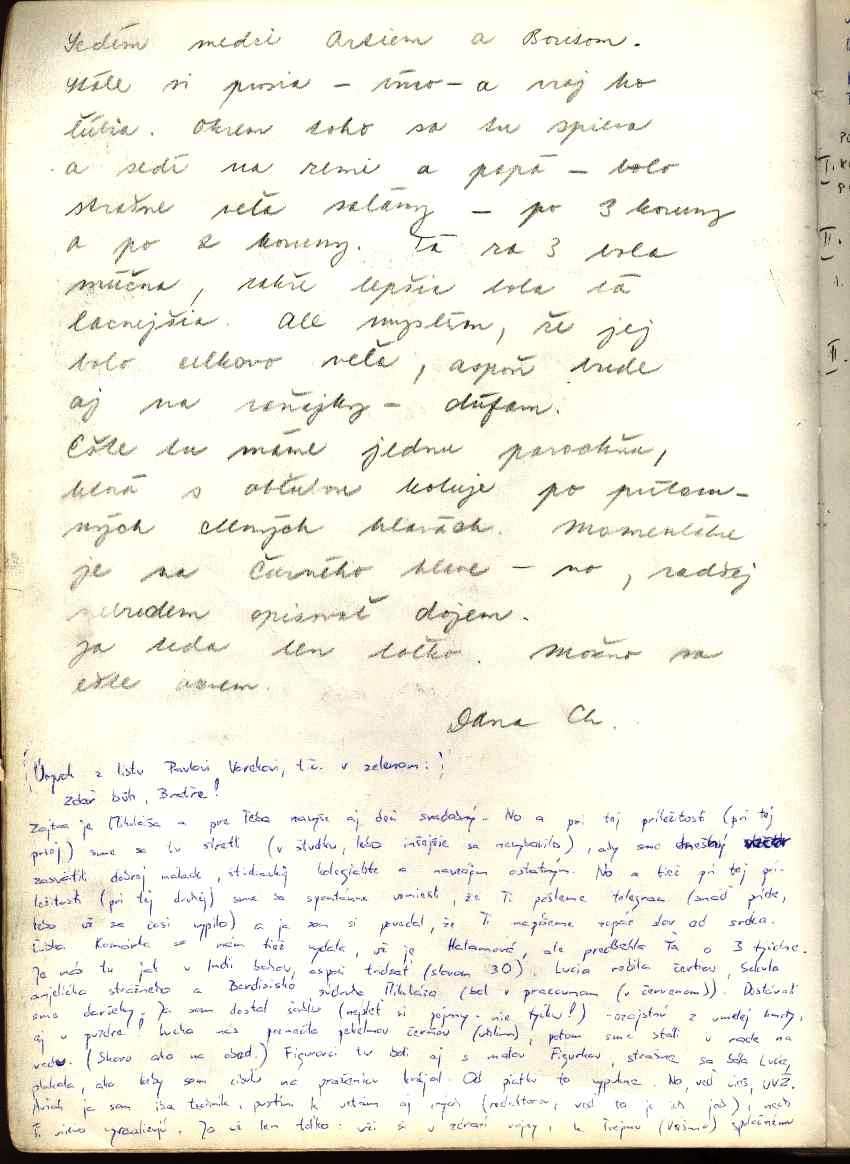 Sedím medzi Artiem a Borisom.
Stále si prosia – víno – a vraj ho
ľúbia. Okrem toho sa tu spieva
a sedí na zemi a papá – bolo
strašne veľa salámy – po 3 koruny
a po 2 koruny. Tá za 3 bola
múčna, takže lepšia bola tá
lacnejšia. Ale myslím, že jej
bolo celkovo veľa, aspoň bude
aj na raňajky – dúfam.
Ešte tu máme jednu parochňu,
ktorá s obľubou koluje po prítom-
ných ctených hlavách. Momentálne
je na Čierného hlave – no, radšej
nebudem opisovať dojem.
Ja teda len toľko. Možno sa
ešte ozvem.
Dana Ch.
z listu Pavlovi t.č. v zelenom:
Zdař bůh, Bratře!
Zajtra je Mikuláša a pre Teba navyše aj deň svadobný. No a pri tej príležitosti (pri tej
prvej) sme sa tu stretli (v študku, lebo inšejšie sa nevybavilo), aby sme dnešný
zasvätili dobrej nálade, študiackej kolegialite a navzájom ostatným. No a tiež pri tej prí-
ležitosti (pri tej druhej) sme sa spontánne uzniesli, že Ti pošleme telegram (snáď príde,
lebo už sa čosi vypilo) a ja som si povedal, že Ti napíšeme zopár slov od srdca.
Komárka sa nám tiež vydala, už je Halamová, ale predbehla Ťa o 3 týždne.
Je nás tu jak v Indii bohov, aspoň tridsať (slovom 30). Lucia robila čertov, Sekula
anjelička strážneho a súdruha Mikuláša (bol v pracovnom (v červenom)). Dostávali
sme darčeky. Ja som dostal šablu (nájdeš si pojmy - nie tyčku!) - ozajstnú z umelej hmoty,
aj v puzdre! Lucka nás premenila pekelnou čerňou (uhlím), potom sme stáli v rade na
vedu. (Skoro ako na obed.) Figurovci tu boli aj s malou Figurkou, strašne sa bála Lucie,
plakala, ako keby som cibuľu na praženicu krájal. Od piatku to vypukne. No, veď vieš, UVŽ.
Avšak ja som iba technik, pustím k vetám aj iných (redaktorov, veď to je ich job), nech
Ti niečo vyrozličnejú. Ja už len toľko: uži si v zdraví vojny, k Tvojmu